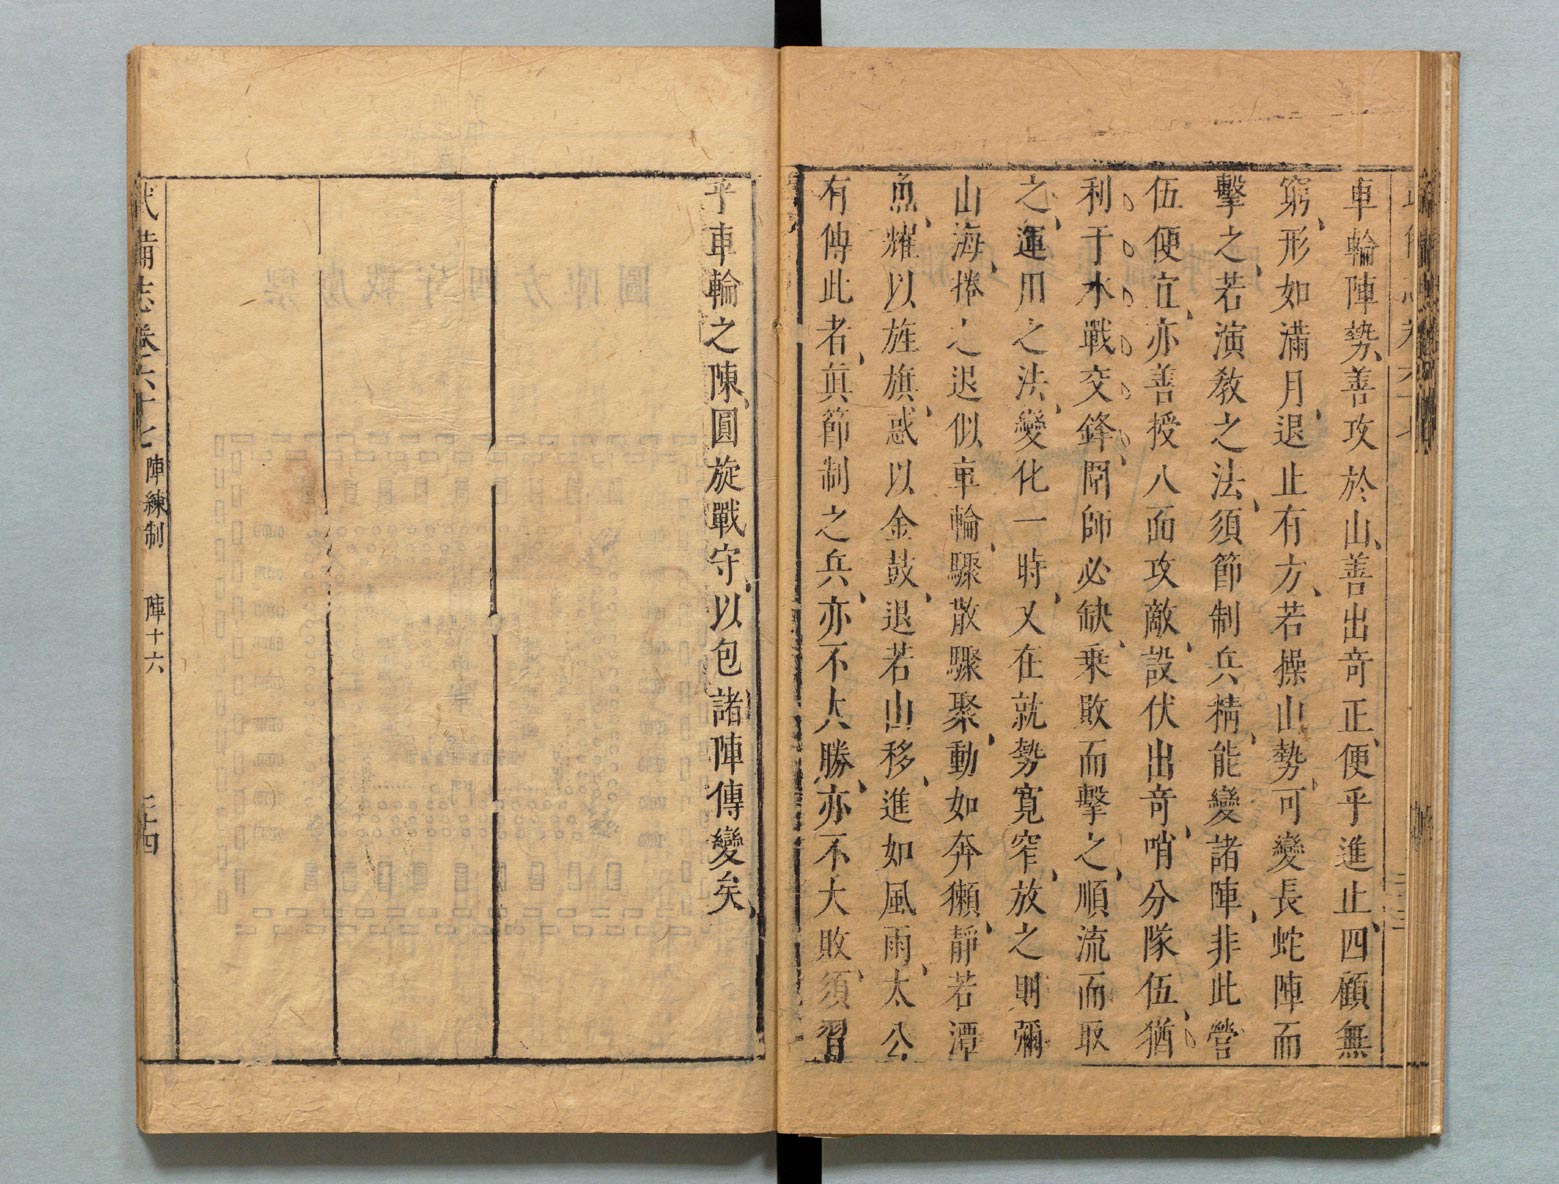 車輪陣勢善攻於山善出奇正便乎進止四顧無
窮形如滿月退止有方若操山勢可變長蛇陣而
擊之若演教之法須節制兵精能變諸陣非此營
伍便宜亦善授八面攻敵設伏出奇哨分隊伍猶
利于水戰交鋒閉師必缺乘敗而擊之順流而取
之運用之法變化一時又在就勢寬窄放之則彌
山海捲之退似車輪驟散驟聚動如奔獺靜若潭
魚耀以旌旗惑以金鼓退若山移進如風雨太公
有傳此者真節制之兵亦不大勝亦不大敗須習
乎車輪之陳圓旋戰守以包諸陣傳變矣
武備志卷六十七 陣練制 陣十六 二十四